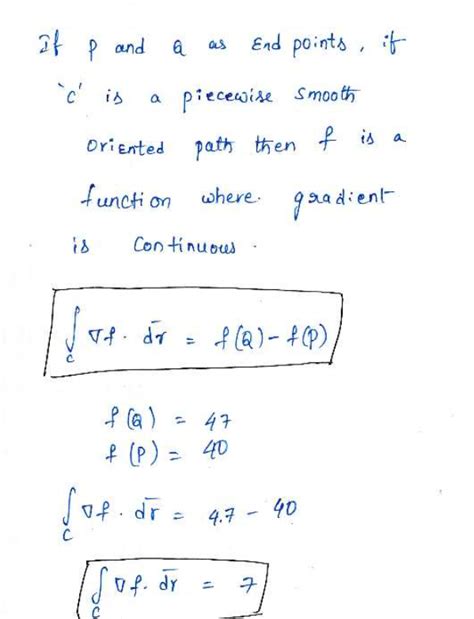 If P and Q as End points, if
'c' is a piecewise smooth
oriented path then f is a
function where. gradient
is Continuous.
∫_C ∇f. dr̄ = f(Q) - f(P)
f(Q) = 47
f(P) = 40
∫_C ∇f. dr̄ = 4.7 - 40
∫_C ∇f. dr̄ = 7